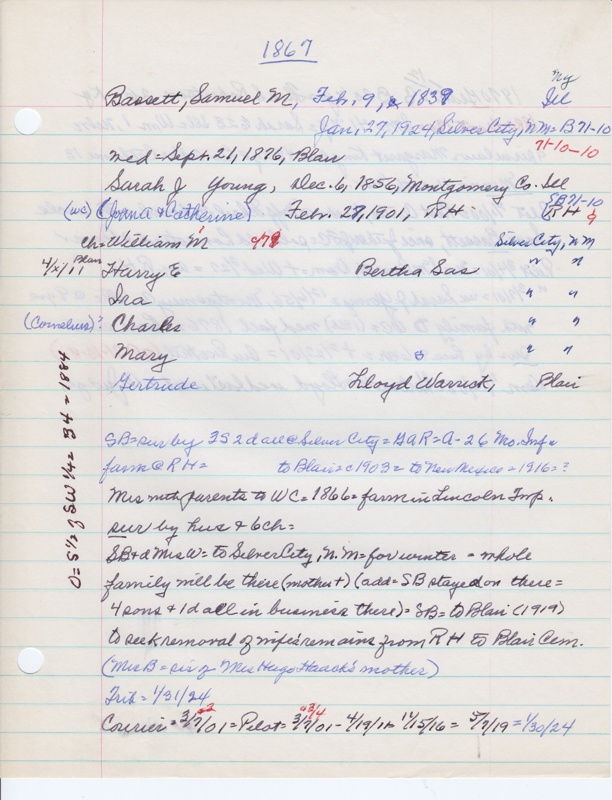 1867
Ny
Bassett, Samuel M, Feb, 9, 1839 Ill
Jan, 27, 1924, Silver City, N M= B71-10
71-10-10
med = Sept. 21, 1876, Blair
Sarah J Young, Dec. 6, 1856, Montgomery Co. Ill
(wc) (Joana & Catherine) Febr. 27, 1901, RH RH
ch= William M Silver City, N M
4/x/11 Blair Harry E Bertha Sas " "
Ira " "
(Cornelius)? Charles " "
Mary " "
Gertrude Lloyd Warrick, Blair
O = S 1/2 of SW 1/4 = 34 = 1884
SB= sur by 3S 2d all @ Silver City = GAR = A-26 Mo. Inf=
farm @ RH = to Blair = c1903 = to New Mexico = 1916 = ?
Mrs with parents to WC = 1866 = farm in Lincoln Twp.
sur by hus & 6ch =
SB & d Mrs W= to Silver City, N. M = for winter = whole
family will be there (mother +) (add = SB stayed on there =
4 sons & 1d all in business there) = SB= to Blair (1919)
to seek removal of wife's remains from RH to Blair Cem.
(Mrs B = sis of Mrs Hugo Haack's mother)
Trib = 1/31/24
Courier = 3/7/01 = Pilot = 3/7/01 - 4/19/11 = 14/15/16 = 5/7/19 = 1/30/24